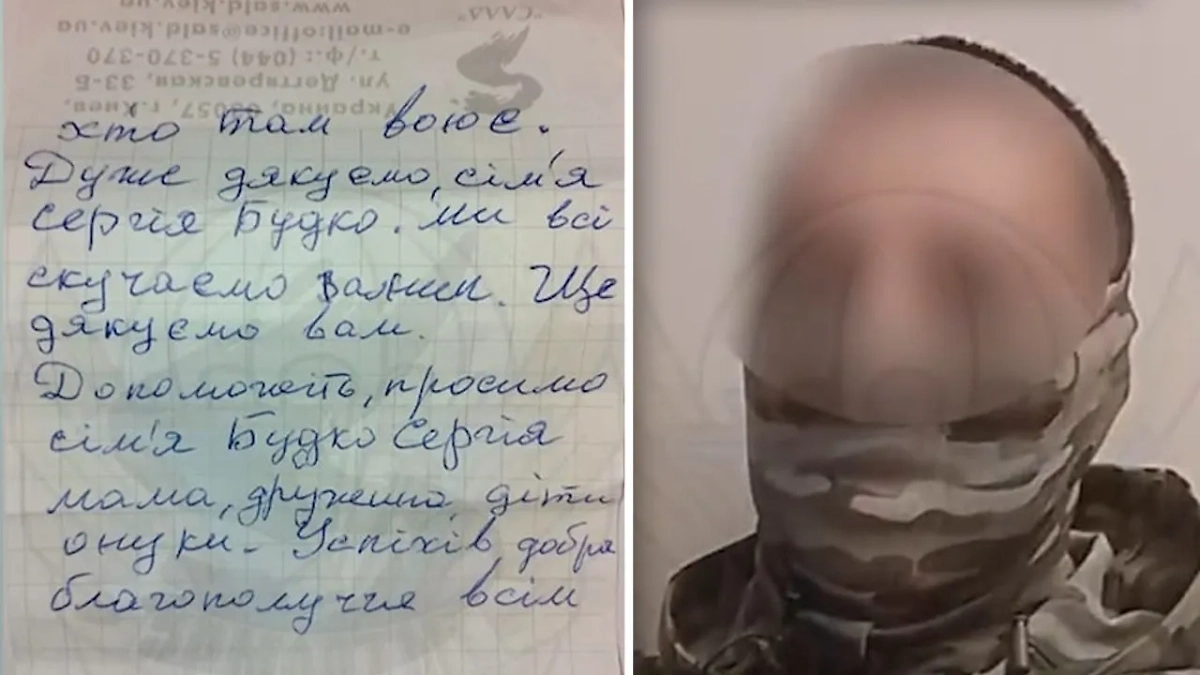 Украина, 03057, г.Киев,
ул. Дегтяревская, 33-Б
т./ф.: (044) 5-370-370
e-mail:office@said.kiev.ua
www.said.kiev.ua
хто там воює.
Дуже дякуємо, сім'я
Сергія Будко. Ми всі
скучаємо за ним. Ще
дякуємо вам.
Допоможіть, просимо
сім'я Будко Сергія
мама, дружина, діти
онуки. Успіхів, добра
благополуччя всім